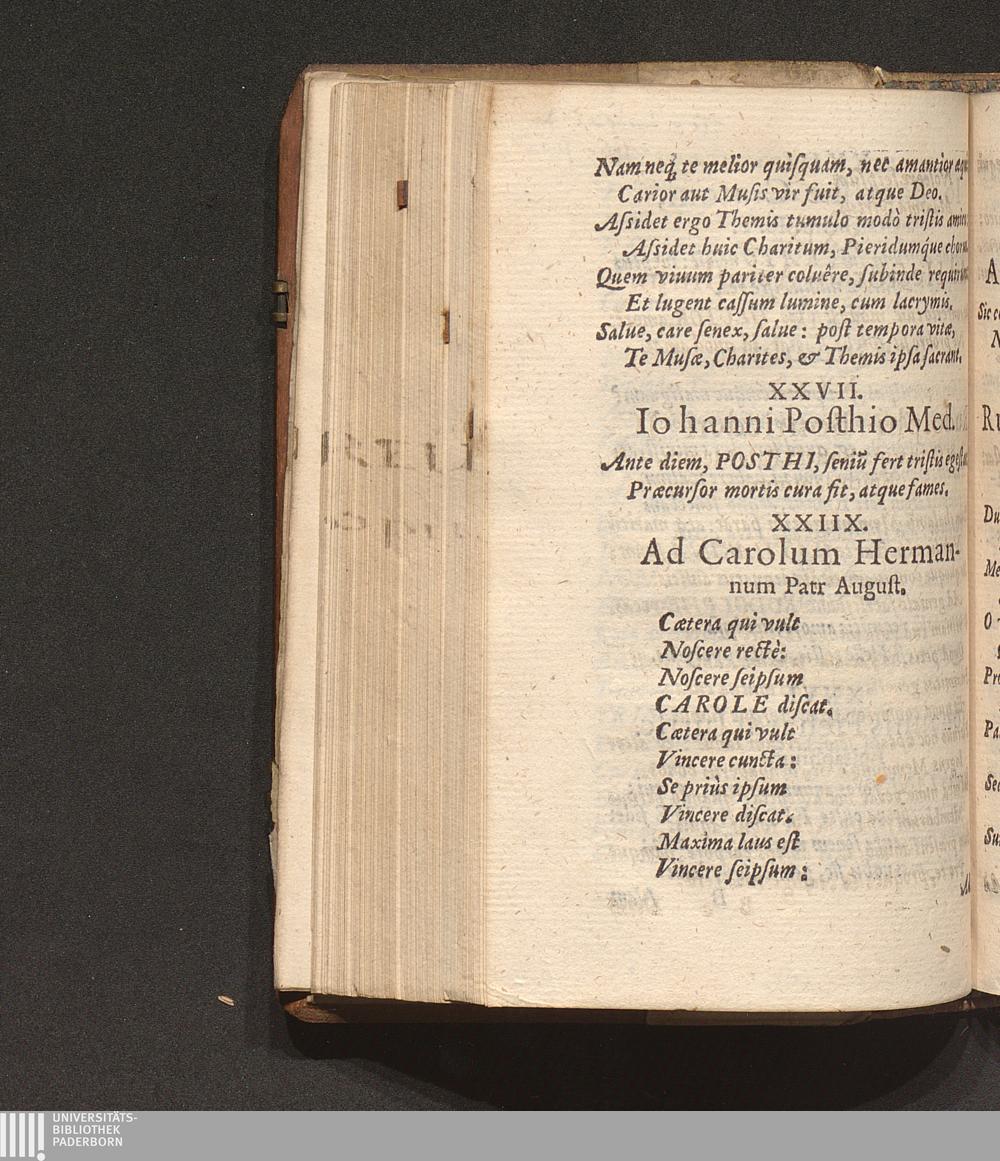 Nam neq́; te melior quiſquam, nec amantior
Carior aut Muſis vir fuit, atque Deo.
Aſsidet ergo Themis tumulo modò triſtis
Aſsidet huic Charitum, Pieridumq́ue
Quem viuum pariter coluêre, ſubinde
Et lugent caſſum lumine, cum lacrymis.
Salue, care ſenex, ſalue: poſt tempora vitæ,
Te Muſæ, Charites, & Themis ipſa ſacrant.
XXVII.
Iohanni Poſthio Med.
Ante diem, POSTHI, ſeniū fert triſtis
Præcurſor mortis cura fit, atque fames.
XXIIX.
Ad Carolum Herman-
num Patr Auguſt.
Cætera qui vult
Noſcere rectè:
Noſcere ſeipſum
CAROLE diſcat.
Cætera qui vult
Vincere cuncta:
Se priùs ipſum
Vincere diſcat.
Maxima laus eſt
Vincere ſeipſum:
UNIVERSITÄTS-
BIBLIOTHEK
PADERBORN